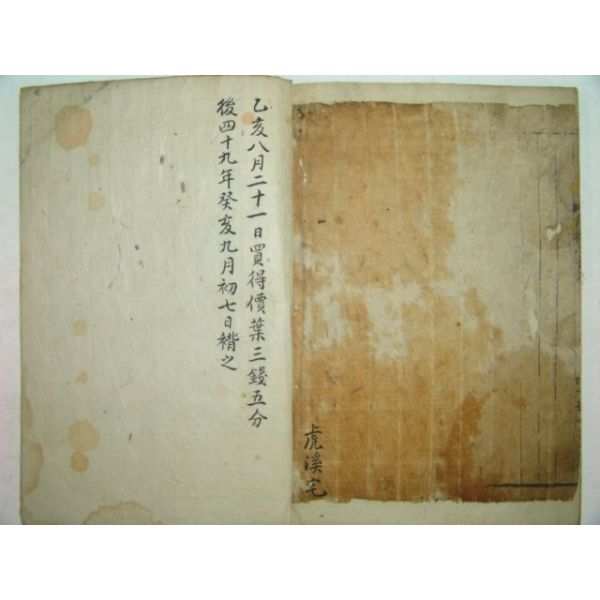 乙亥八月二十一日買得價葉三錢五分
後四十九年癸亥九月初七日褙之
虎溪宅